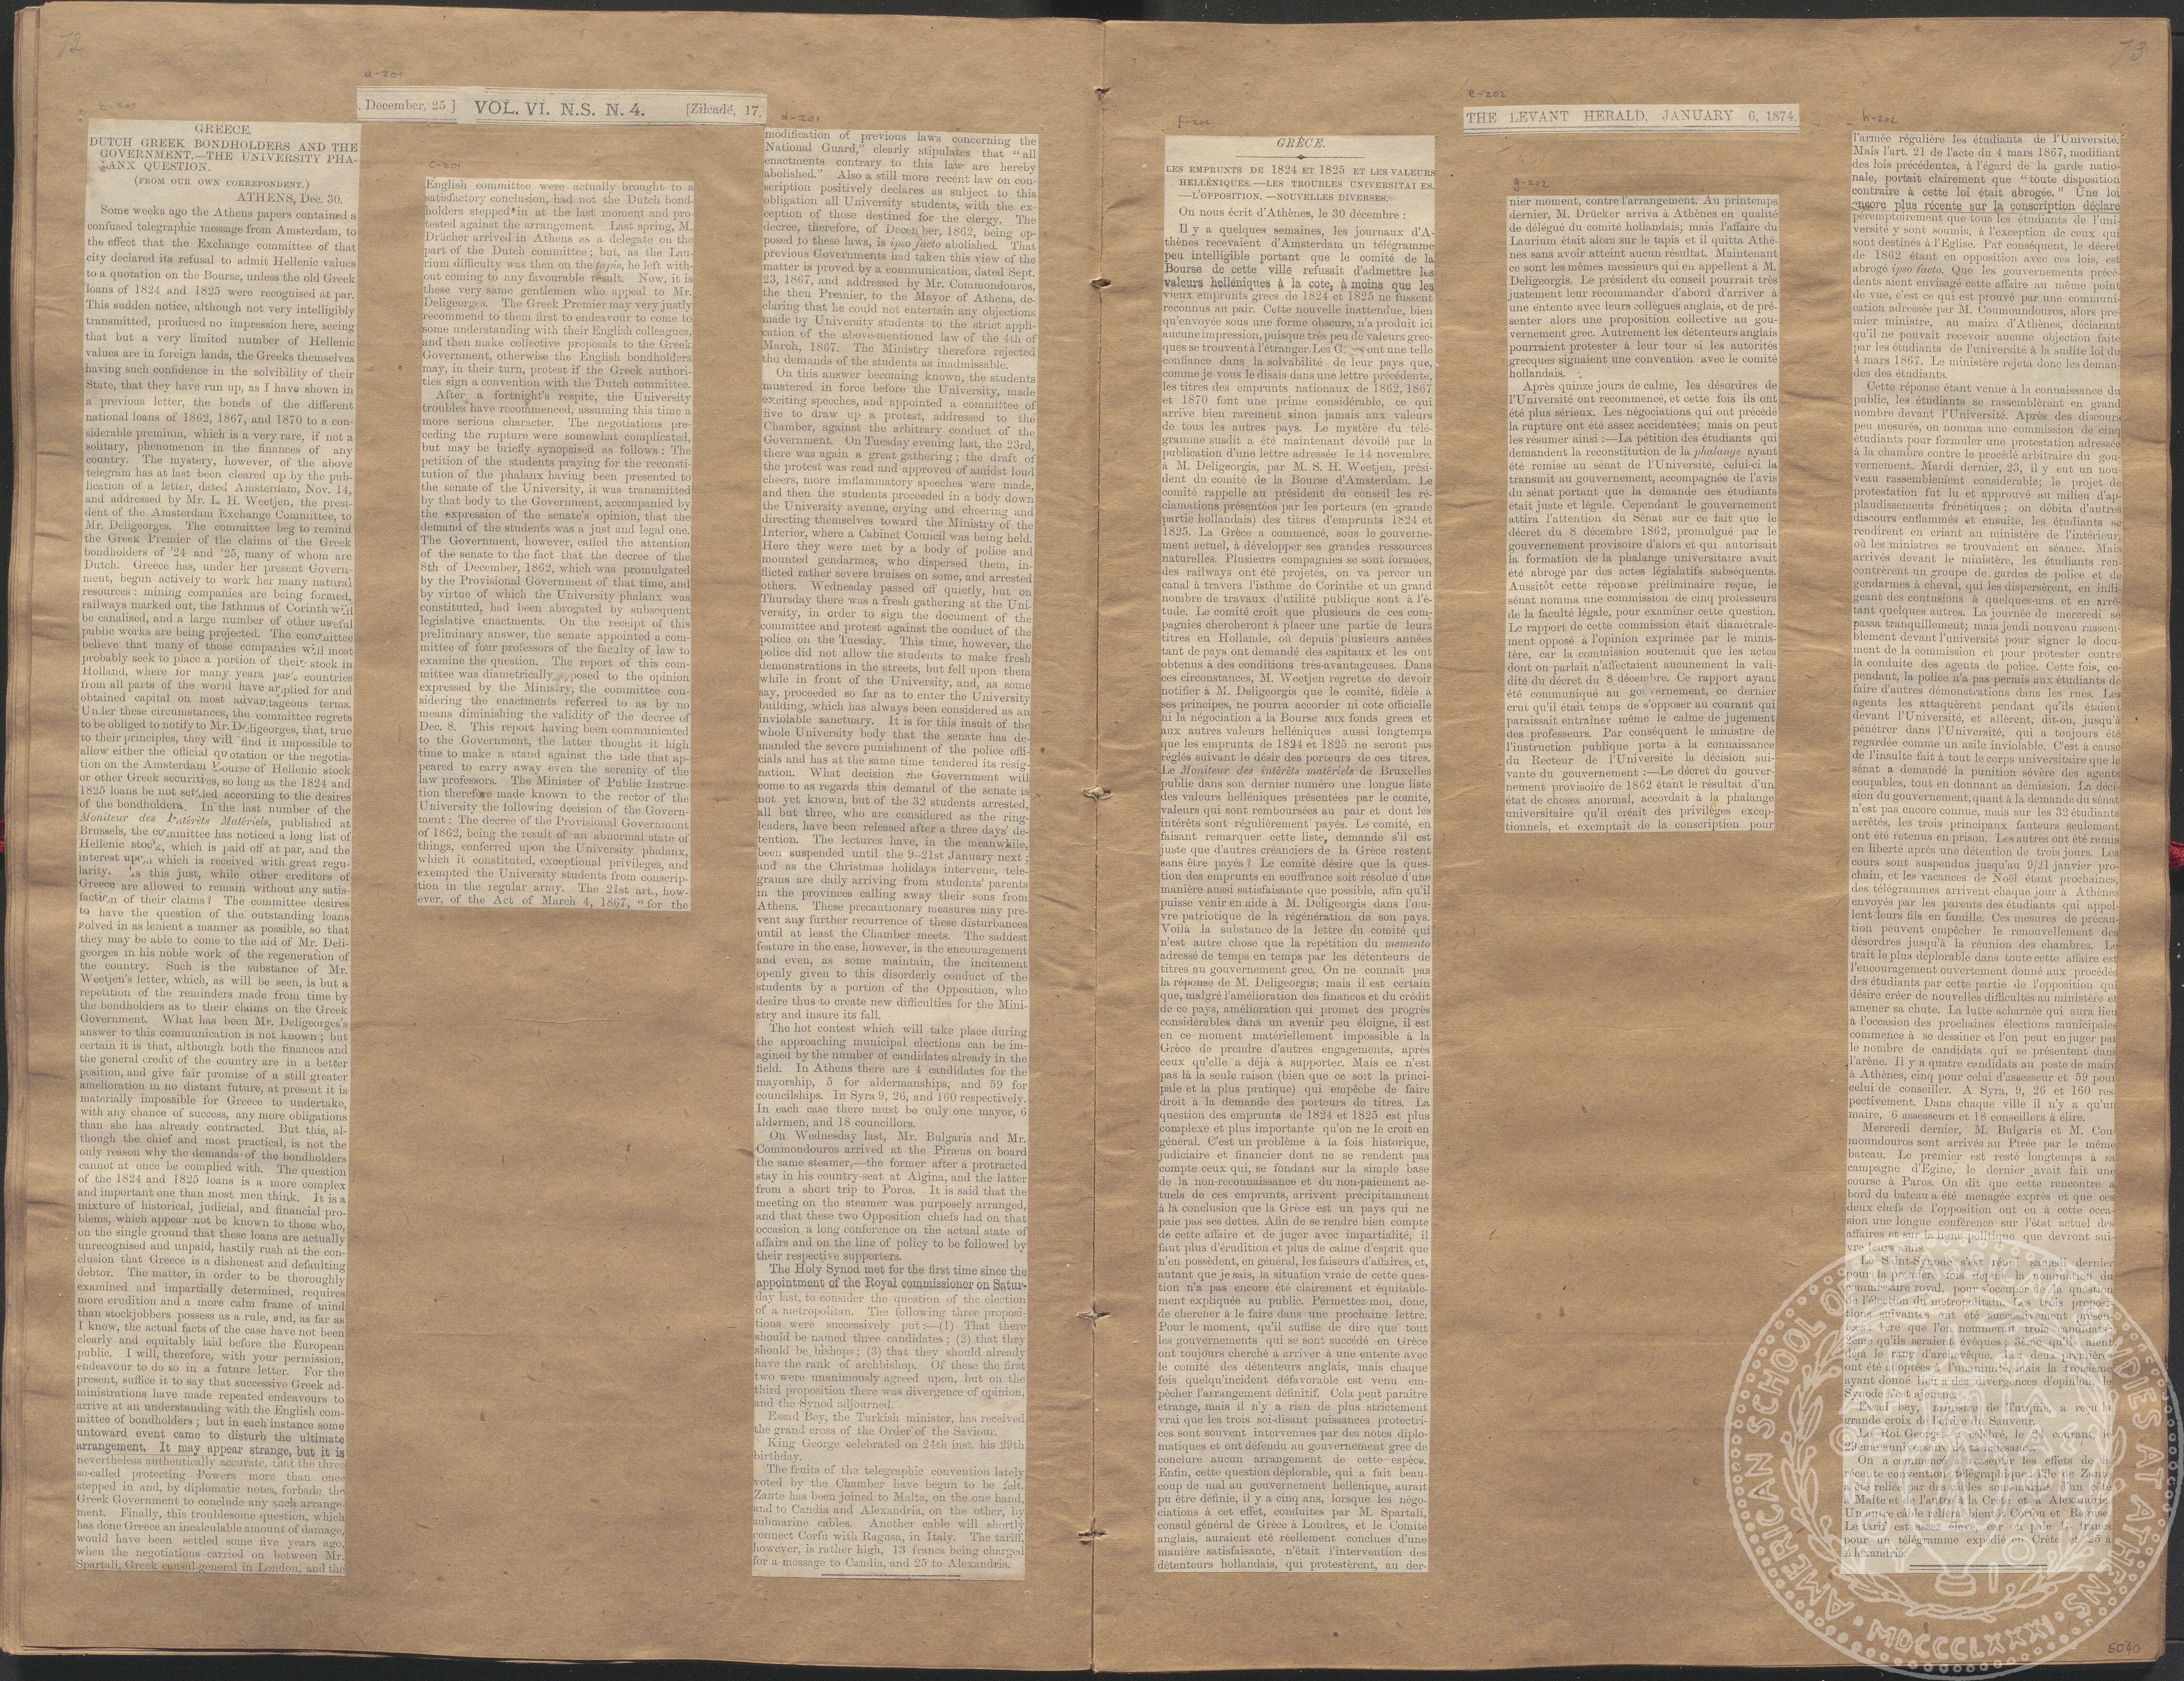 72
a-201
. December, 25 ] VOL. VI. N.S. N. 4. [Zilcadé, 17,
b-201
GREECE.
DUTCH GREEK BONDHOLDERS AND THE
GOVERNMENT.—THE UNIVERSITY PHA-
LANX QUESTION.
(FROM OUR OWN CORREPONDENT.)
ATHENS, Dec. 30.
Some weeks ago the Athens papers contained a
confused telegraphic message from Amsterdam, to
the effect that the Exchange committee of that
city declared its refusal to admit Hellenic values
to a quotation on the Bourse, unless the old Greek
loans of 1824 and 1825 were recognised at par.
This sudden notice, although not very intelligibly
transmitted, produced no impression here, seeing
that but a very limited number of Hellenic
values are in foreign lands, the Greeks themselves
having such confidence in the solvibility of their
State, that they have run up, as I have shown in
a previous letter, the bonds of the different
national loans of 1862, 1867, and 1870 to a con-
siderable premium, which is a very rare, if not a
solitary, phenomenon in the finances of any
country. The mystery, however, of the above
telegram has at last been cleared up by the pub-
lication of a letter, dated Amsterdam, Nov. 14,
and addressed by Mr. L. H. Weetjen, the presi-
dent of the Amsterdam Exchange Committee, to
Mr. Deligeorges. The committee beg to remind
the Greek Premier of the claims of the Greek
bondholders of '24 and '25, many of whom are
Dutch. Greece has, under her present Govern-
ment, begun actively to work her many natural
resources : mining companies are being formed,
railways marked out, the Isthmus of Corinth will
be canalised, and a large number of other useful
public works are being projected. The committee
believe that many of those companies will most
probably seek to place a portion of their stock in
Holland, where for many years past countries
from all parts of the world have applied for and
obtained capital on most advantageous terms.
Under these circumstances, the committee regrets
to be obliged to notify to Mr. Deligeorges, that, true
to their principles, they will find it impossible to
allow either the official quotation or the negotia-
tion on the Amsterdam Bourse of Hellenic stock
or other Greek securities, so long as the 1824 and
1825 loans be not settled according to the desires
of the bondholders. In the last number of the
Moniteur des Intérêts Matériels, published at
Brussels, the committee has noticed a long list of
Hellenic stock, which is paid off at par, and the
interest upon which is received with great regu-
larity. Is this just, while other creditors of
Greece are allowed to remain without any satis-
faction of their claims? The committee desires
to have the question of the outstanding loans
solved in as lenient a manner as possible, so that
they may be able to come to the aid of Mr. Deli-
georges in his noble work of the regeneration of
the country. Such is the substance of Mr.
Weetjen's letter, which, as will be seen, is but a
repetition of the reminders made from time by
the bondholders as to their claims on the Greek
Government. What has been Mr. Deligeorges's
answer to this communication is not known ; but
certain it is that, although both the finances and
the general credit of the country are in a better
position, and give fair promise of a still greater
amelioration in no distant future, at present it is
materially impossible for Greece to undertake,
with any chance of success, any more obligations
than she has already contracted. But this, al-
though the chief and most practical, is not the
only reason why the demands of the bondholders
cannot at once be complied with. The question
of the 1824 and 1825 loans is a more complex
and important one than most men think. It is a
mixture of historical, judicial, and financial pro-
blems, which appear not be known to those who,
on the single ground that these loans are actually
unrecognised and unpaid, hastily rush at the con-
clusion that Greece is a dishonest and defaulting
debtor. The matter, in order to be thoroughly
examined and impartially determined, requires
more erudition and a more calm frame of mind
than stockjobbers possess as a rule, and, as far as
I know, the actual facts of the case have not been
clearly and equitably laid before the European
public. I will, therefore, with your permission,
endeavour to do so in a future letter. For the
present, suffice it to say that successive Greek ad-
ministrations have made repeated endeavours to
arrive at an understanding with the English com-
mittee of bondholders ; but in each instance some
untoward event came to disturb the ultimate
arrangement. It may appear strange, but it is
nevertheless authentically accurate, that the three
so-called protecting Powers more than once
stepped in and, by diplomatic notes, forbade the
Greek Government to conclude any such arrange-
ment. Finally, this troublesome question, which
has done Greece an incalculable amount of damage,
would have been settled some five years ago,
when the negotiations carried on between Mr.
Spartali, Greek consul-general in London, and the
c-201
English committee were actually brought to a
satisfactory conclusion, had not the Dutch bond-
holders stepped in at the last moment and pro-
tested against the arrangement. Last spring, M.
Drücher arrived in Athens as a delegate on the
part of the Dutch committee ; but, as the Lau-
rium difficulty was then on the tapis, he left with-
out coming to any favourable result. Now, it is
these very same gentlemen who appeal to Mr.
Deligeorges. The Greek Premier may very justly
recommend to them first to endeavour to come to
some understanding with their English colleagues,
and then make collective proposals to the Greek
Government, otherwise the English bondholders
may, in their turn, protest if the Greek authori-
ties sign a convention with the Dutch committee.
After a fortnight's respite, the University
troubles have recommenced, assuming this time a
more serious character. The negotiations pre-
ceding the rupture were somewhat complicated,
but may be briefly synopsised as follows : The
petition of the students praying for the reconsti-
tution of the phalanx having been presented to
the senate of the University, it was transmitted
by that body to the Government, accompanied by
the expression of the senate's opinion, that the
demand of the students was a just and legal one.
The Government, however, called the attention
of the senate to the fact that the decree of the
8th of December, 1862, which was promulgated
by the Provisional Government of that time, and
by virtue of which the University phalanx was
constituted, had been abrogated by subsequent
legislative enactments. On the receipt of this
preliminary answer, the senate appointed a com-
mittee of four professors of the faculty of law to
examine the question. The report of this com-
mittee was diametrically opposed to the opinion
expressed by the Ministry; the committee con-
sidering the enactments referred to as by no
means diminishing the validity of the decree of
Dec. 8. This report having been communicated
to the Government, the latter thought it high
time to make a stand against the tide that ap-
peared to carry away even the serenity of the
law professors. The Minister of Public Instruc-
tion therefore made known to the rector of the
University the following decision of the Govern-
ment : The decree of the Provisional Government
of 1862, being the result of an abnormal state of
things, conferred upon the University phalanx,
which it constituted, exceptional privileges, and
exempted the University students from conscrip-
tion in the regular army. The 21st art., how-
ever, of the Act of March 4, 1867, "for the
d-201
modification of previous laws concerning the
National Guard," clearly stipulates that "all
enactments contrary to this law are hereby
abolished." Also a still more recent law on con-
scription positively declares as subject to this
obligation all University students, with the ex-
ception of those destined for the clergy. The
decree, therefore, of December, 1862, being op-
posed to these laws, is ipso facto abolished. That
previous Governments had taken this view of the
matter is proved by a communication, dated Sept.
23, 1867, and addressed by Mr. Commondouros,
the then Premier, to the Mayor of Athens, de-
claring that he could not entertain any objections
made by University students to the strict appli-
cation of the above-mentioned law of the 4th of
March, 1867. The Ministry therefore rejected
the demands of the students as inadmissable.
On this answer becoming known, the students
mustered in force before the University, made
exciting speeches, and appointed a committee of
five to draw up a protest, addressed to the
Chamber, against the arbitrary conduct of the
Government. On Tuesday evening last, the 23rd,
there was again a great gathering ; the draft of
the protest was read and approved of amidst loud
cheers, more inflammatory speeches were made,
and then the students proceeded in a body down
the University avenue, crying and cheering and
directing themselves toward the Ministry of the
Interior, where a Cabinet Council was being held.
Here they were met by a body of police and
mounted gendarmes, who dispersed them, in-
flicted rather severe bruises on some, and arrested
others. Wednesday passed off quietly, but on
Thursday there was a fresh gathering at the Uni-
versity, in order to sign the document of the
committee and protest against the conduct of the
police on the Tuesday. This time, however, the
police did not allow the students to make fresh
demonstrations in the streets, but fell upon them
while in front of the University, and, as some
say, proceeded so far as to enter the University
building, which has always been considered as an
inviolable sanctuary. It is for this insult of the
whole University body that the senate has de-
manded the severe punishment of the police offi-
cials and has at the same time tendered its resig-
nation. What decision the Government will
come to as regards this demand of the senate is
not yet known, but of the 32 students arrested,
all but three, who are considered as the ring-
leaders, have been released after a three days' de-
tention. The lectures have, in the meanwhile,
been suspended until the 9-21st January next ;
and as the Christmas holidays intervene, tele-
grams are daily arriving from students' parents
in the provinces calling away their sons from
Athens. These precautionary measures may pre-
vent any further recurrence of these disturbances
until at least the Chamber meets. The saddest
feature in the case, however, is the encouragement
and even, as some maintain, the incitement
openly given to this disorderly conduct of the
students by a portion of the Opposition, who
desire thus to create new difficulties for the Mini-
stry and insure its fall.
The hot contest which will take place during
the approaching municipal elections can be im-
agined by the number of candidates already in the
field. In Athens there are 4 candidates for the
mayorship, 5 for aldermanships, and 59 for
councilships. In Syra 9, 26, and 160 respectively.
In each case there must be only one mayor, 6
aldermen, and 18 councillors.
On Wednesday last, Mr. Bulgaris and Mr.
Commondouros arrived at the Piræus on board
the same steamer,—the former after a protracted
stay in his country-seat at Algina, and the latter
from a short trip to Poros. It is said that the
meeting on the steamer was purposely arranged,
and that these two Opposition chiefs had on that
occasion a long conference on the actual state of
affairs and on the line of policy to be followed by
their respective supporters.
The Holy Synod met for the first time since the
appointment of the Royal commissioner on Satur-
day last, to consider the question of the election
of a metropolitan. The following three proposi-
tions were successively put :—(1) That there
should be named three candidates ; (2) that they
should be bishops ; (3) that they should already
have the rank of archbishop. Of these the first
two were unanimously agreed upon, but on the
third proposition there was divergence of opinion,
and the Synod adjourned.
Essad Bey, the Turkish minister, has received
the grand cross of the Order of the Saviour.
King George celebrated on 24th inst. his 29th
birthday.
The fruits of the telegraphic convention lately
voted by the Chamber have begun to be felt.
Zante has been joined to Malta, on the one hand,
and to Candia and Alexandria, on the other, by
submarine cables. Another cable will shortly
connect Corfu with Ragusa, in Italy. The tariff,
however, is rather high, 13 francs being charged
for a message to Candia, and 25 to Alexandria.
73
e-202
THE LEVANT HERALD, JANUARY 6, 1874.
f-202
GRÈCE.
LES EMPRUNTS DE 1824 ET 1825 ET LES VALEURS
HELLÉNIQUES.—LES TROUBLES UNIVERSITAI ES.
—L'OPPOSITION.—NOUVELLES DIVERSES.
On nous écrit d'Athènes, le 30 décembre :
Il y a quelques semaines, les journaux d'A-
thènes recevaient d'Amsterdam un télégramme
peu intelligible portant que le comité de la
Bourse de cette ville refusait d'admettre les
valeurs helléniques à la cote, à moins que les
vieux emprunts grecs de 1824 et 1825 ne fussent
reconnus au pair. Cette nouvelle inattendue, bien
qu'envoyée sous une forme obscure, n'a produit ici
aucune impression, puisque très peu de valeurs grec-
ques se trouvent à l'étranger. Les G es ont une telle
confiance dans la solvabilité de leur pays que,
comme je vous le disais dans une lettre précédente,
les titres des emprunts nationaux de 1862, 1867
et 1870 font une prime considérable, ce qui
arrive bien rarement sinon jamais aux valeurs
de tous les autres pays. Le mystère du télé-
gramme susdit a été maintenant dévoilé par la
publication d'une lettre adressée le 14 novembre.
à M. Deligeorgis, par M. S. H. Weetjen, prési-
dent du comité de la Bourse d'Amsterdam. Le
comité rappelle au président du conseil les ré-
clamations présentées par les porteurs (en grande
partie hollandais) des titres d'emprunts 1824 et
1825. La Grèce a commencé, sous le gouverne-
ment actuel, à développer ses grandes ressources
naturelles. Plusieurs compagnies se sont formées,
des railways ont été projetés, on va percer un
canal à travers l'isthme de Corinthe et un grand
nombre de travaux d'utilité publique sont à l'é-
tude. Le comité croit que plusieurs de ces com-
pagnies chercheront à placer une partie de leurs
titres en Hollande, où depuis plusieurs années
tant de pays ont demandé des capitaux et les ont
obtenus à des conditions très-avantageuses. Dans
ces circonstances, M. Weetjen regrette de devoir
notifier à M. Deligeorgis que le comité, fidèle à
ses principes, ne pourra accorder ni cote officielle
ni la négociation à la Bourse aux fonds grecs et
aux autres valeurs helléniques aussi longtemps
que les emprunts de 1824 et 1825 ne seront pas
réglés suivant le désir des porteurs de ces titres.
Le Moniteur des intérêts matériels de Bruxelles
publie dans son dernier numéro une longue liste
des valeurs helléniques présentées par le comité,
valeurs qui sont remboursées au pair et dont les
intérêts sont régulièrement payés. Le comité, en
faisant remarquer cette liste, demande s'il est
juste que d'autres créanciers de la Grèce restent
sans être payés ? Le comité désire que la ques-
tion des emprunts en souffrance soit résolue d'une
manière aussi satisfaisante que possible, afin qu'il
puisse venir en aide à M. Deligeorgis dans l'œu-
vre patriotique de la régénération de son pays.
Voilà la substance de la lettre du comité qui
n'est autre chose que la répétition du memento
adressé de temps en temps par les détenteurs de
titres au gouvernement grec. On ne connait pas
la réponse de M. Deligeorgis; mais il est certain
que, malgré l'amélioration des finances et du crédit
de ce pays, amélioration qui promet des progrès
considérables dans un avenir peu éloigne, il est
en ce moment matériellement impossible à la
Grèce de prendre d'autres engagements, après
ceux qu'elle a déjà à supporter. Mais ce n'est
pas là la seule raison (bien que ce soit la princi-
pale et la plus pratique) qui empêche de faire
droit à la demande des porteurs de titres. La
question des emprunts de 1824 et 1825 est plus
complexe et plus importante qu'on ne le croit en
général. C'est un problème à la fois historique,
judiciaire et financier dont ne se rendent pas
compte ceux qui, se fondant sur la simple base
de la non-reconnaissance et du non-paiement ac-
tuels de ces emprunts, arrivent précipitamment
à la conclusion que la Grèce est un pays qui ne
paie pas ses dettes. Afin de se rendre bien compte
de cette affaire et de juger avec impartialité, il
faut plus d'érudition et plus de calme d'esprit que
n'en possèdent, en général, les faiseurs d'affaires, et,
autant que je sais, la situation vraie de cette ques-
tion n'a pas encore été clairement et équitable-
ment expliquée au public. Permettez-moi, donc,
de chercher à le faire dans une prochaine lettre.
Pour le moment, qu'il suffise de dire que tout
les gouvernements qui se sont succédé en Grèce
ont toujours cherché à arriver à une entente avec
le comité des détenteurs anglais, mais chaque
fois quelqu'incident défavorable est venu em-
pêcher l'arrangement définitif. Cela peut paraitre
étrange, mais il n'y a rien de plus strictement
vrai que les trois soi-disant puissances protectri-
ces sont souvent intervenues par des notes diplo-
matiques et ont défendu au gouvernement grec de
conclure aucun arrangement de cette espèce.
Enfin, cette question déplorable, qui a fait beau-
coup de mal au gouvernement hellénique, aurait
pu être définie, il y a cinq ans, lorsque les négo-
ciations à cet effet, conduites par M. Spartali,
consul général de Grèce à Londres, et le Comité
anglais, auraient été réellement conclues d'une
manière satisfaisante, n'était l'intervention des
détenteurs hollandais, qui protestèrent, au der-
g-202
nier moment, contre l'arrangement. Au printemps
dernier, M. Drücker arriva à Athènes en qualité
de délégué du comité hollandais; mais l'affaire du
Laurium était alors sur le tapis et il quitta Athè-
nes sans avoir atteint aucun résultat. Maintenant
ce sont les mêmes messieurs qui en appellent à M.
Deligeorgis. Le président du conseil pourrait très
justement leur recommander d'abord d'arriver à
une entente avec leurs collègues anglais, et de pré-
senter alors une proposition collective au gou-
vernement grec. Autrement les détenteurs anglais
pourraient protester à leur tour si les autorités
grecques signaient une convention avec le comité
hollandais.
Après quinze jours de calme, les désordres de
l'Université ont recommencé, et cette fois ils ont
été plus sérieux. Les négociations qui ont précédé
la rupture ont été assez accidentées; mais on peut
les résumer ainsi :—La pétition des étudiants qui
demandent la reconstitution de la phalange ayant
été remise au sénat de l'Université, celui-ci la
transmit au gouvernement, accompagnée de l'avis
du sénat portant que la demande des étudiants
était juste et légale. Cependant le gouvernement
attira l'attention du Sénat sur ce fait que le
décret du 8 décembre 1862, promulgué par le
gouvernement provisoire d'alors et qui autorisait
la formation de la phalange universitaire avait
été abrogé par des actes législatifs subséquents.
Aussitôt cette réponse préliminaire reçue, le
sénat nomma une commission de cinq professeurs
de la faculté légale, pour examiner cette question.
Le rapport de cette commission était diamétrale-
ment opposé à l'opinion exprimée par le minis-
tère, car la commission soutenait que les actes
dont on parlait n'affectaient aucunement la vali-
dité du décret du 8 décembre. Ce rapport ayant
été communiqué au gouvernement, ce dernier
crut qu'il était temps de s'opposer au courant qui
paraissait entraîner même le calme de jugement
des professeurs. Par conséquent le ministre de
l'instruction publique porta à la connaissance
du Recteur de l'Université la décision sui-
vante du gouvernement :—Le décret du gouver-
nement provisoire de 1862 étant le résultat d'un
état de choses anormal, accordait à la phalange
universitaire qu'il créait des privilèges excep-
tionnels, et exemptait de la conscription pour
h-202
l'armée régulière les étudiants de l'Université.
Mais l'art. 21 de l'acte du 4 mars 1867, modifiant
des lois précédentes, à l'égard de la garde natio-
nale, portait clairement que "toute disposition
contraire à cette loi était abrogée." Une loi
encore plus récente sur la conscription déclare
péremptoirement que tous les étudiants de l'uni-
versité y sont soumis, à l'exception de ceux qui
sont destinés à l'Eglise. Par conséquent, le décret
de 1862 étant en opposition avec ces lois, est
abrogé ipso facto. Que les gouvernements précé-
dents aient envisagé cette affaire au même point
de vue, c'est ce qui est prouvé par une communi-
cation adressée par M. Coumoundouros, alors pre-
mier ministre, au maire d'Athènes, déclarant
qu'il ne pouvait recevoir aucune objection faite
par les étudiants de l'université à la sudite loi du
4 mars 1867. Le ministère rejeta donc les deman-
des des étudiants.
Cette réponse étant venue à la connaissance du
public, les étudiants se rassemblèrent en grand
nombre devant l'Université. Après des discours
peu mesurés, on nomma une commission de cinq
étudiants pour formuler une protestation adressée
à la chambre contre le procédé arbitraire du gou-
vernement. Mardi dernier, 23, il y eut un nou-
veau rassemblement considérable; le projet de
protestation fut lu et approuvé au milieu d'ap-
plaudissements frénétiques ; on débita d'autres
discours enflammés et ensuite, les étudiants se
rendirent en criant au ministère de l'intérieur,
où les ministres se trouvaient en séance. Mais
arrivés devant le ministère, les étudiants ren-
contrèrent un groupe de gardes de police et de
gendarmes à cheval, qui les dispersèrent, en infli-
geant des contusions à quelques-uns et en arrê-
tant quelques autres. La journée de mercredi se
passa tranquillement; mais jeudi nouveau rassem-
blement devant l'université pour signer le docu-
ment de la commission et pour protester contre
la conduite des agents de police. Cette fois, ce-
pendant, la police n'a pas permis aux étudiants de
faire d'autres démonstrations dans les rues. Les
agents les attaquèrent pendant qu'ils étaient
devant l'Université, et allèrent, dit-on, jusqu'à
pénétrer dans l'Université, qui a toujours été
regardée comme un asile inviolable. C'est à cause
de l'insulte fait à tout le corps universitaire que le
sénat a demandé la punition sévère des agents
coupables, tout en donnant sa démission. La déci-
sion du gouvernement, quant à la demande du sénat
n'est pas encore connue, mais sur les 32 étudiants
arrêtés, les trois principaux fauteurs seulement
ont été retenus en prison. Les autres ont été remis
en liberté après une détention de trois jours. Les
cours sont suspendus jusqu'au 9/21 janvier pro-
chain, et les vacances de Noël étant prochaines,
des télégrammes arrivent chaque jour à Athènes
envoyés par les parents des étudiants qui appel-
lent leurs fils en famille. Ces mesures de précau-
tion peuvent empêcher le renouvellement des
désordres jusqu'à la réunion des chambres. Le
trait le plus déplorable dans toute cette affaire est
l'encouragement ouvertement donné aux procédés
des étudiants par cette partie de l'opposition qui
désire créer de nouvelles difficultés au ministère et
amener sa chute. La lutte acharnée qui aura lieu
à l'occasion des prochaines élections municipales
commence à se dessiner et l'on peut en juger par
le nombre de candidats qui se présentent dans
l'arène. Il y a quatre candidats au poste de maire
à Athènes, cinq pour celui d'assesseur et 59 pour
celui de conseiller. A Syra, 9, 26 et 160 res
pectivement. Dans chaque ville il n'y a qu'un
maire, 6 assesseurs et 18 conseillers à élire.
Mercredi dernier, M. Bulgaris et M. Cou
moundouros sont arrivés au Pirée par le même
bateau. Le premier est resté longtemps à sa
campagne d'Egine, le dernier avait fait une
course à Paros. On dit que cette rencontre à
bord du bateau a été menagée exprès et que ces
deux chefs de l'opposition ont eu à cette occa-
sion une longue conférence sur l'état actuel des
affaires et sur la ligne politique que devront sui-
vre leurs amis.
Le Saint-Synode s'est réuni samedi dernier
pour la première fois depuis la nomination du
commissaire royal, pour s'occuper de la question
de l'élection du métropolitain. Les trois proposi-
tions suivantes ont été successivement présen-
tées: 1ère que l'on nommerait trois candidats;
2ème qu'ils seraient évêques ; 3ème qu'ils aient
déjà le rang d'archevêque. Les deux premières
ont été adoptées à l'unanimité, mais la troisième
ayant donné lieu à des divergences d'opinion, le
Synode s'est ajourné.
Essad bey, ministre de Turquie, a reçu la
grande croix de l'ordre du Sauveur.
Le Roi Georges a célébré, le 24 courant, le
29ème anniversaire de sa naissance.
On a commencé à ressentir les effets de la
récente convention télégraphique. L'île de Zante
a été reliée par des câbles sous-marins d'un côté
à Malte et de l'autre à la Crète et à Alexandrie.
Un autre câble reliera bientôt Corfou et Raguse.
Le tarif est assez élevé, car on paie 13 francs
pour un télégramme expédié en Crète et 25 à
Alexandrie.
AMERICAN SCHOOL OF CLASSICAL STUDIES AT ATHENS
MDCCCLXXXI
5040